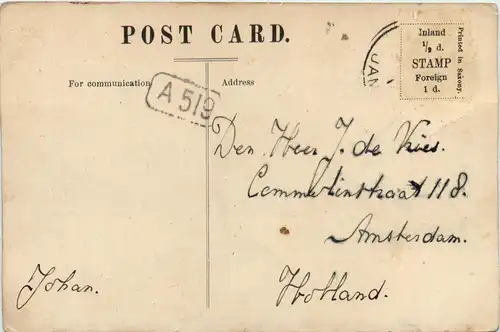 POST CARD.
For communication
Address
Inland
1/2 d.
STAMP
Foreign
1 d.
Printed in Saxony.
JAN
A 519
Den Heer J. de Vries.
Commelinstraat 118.
Amsterdam.
Holland.
Johan.